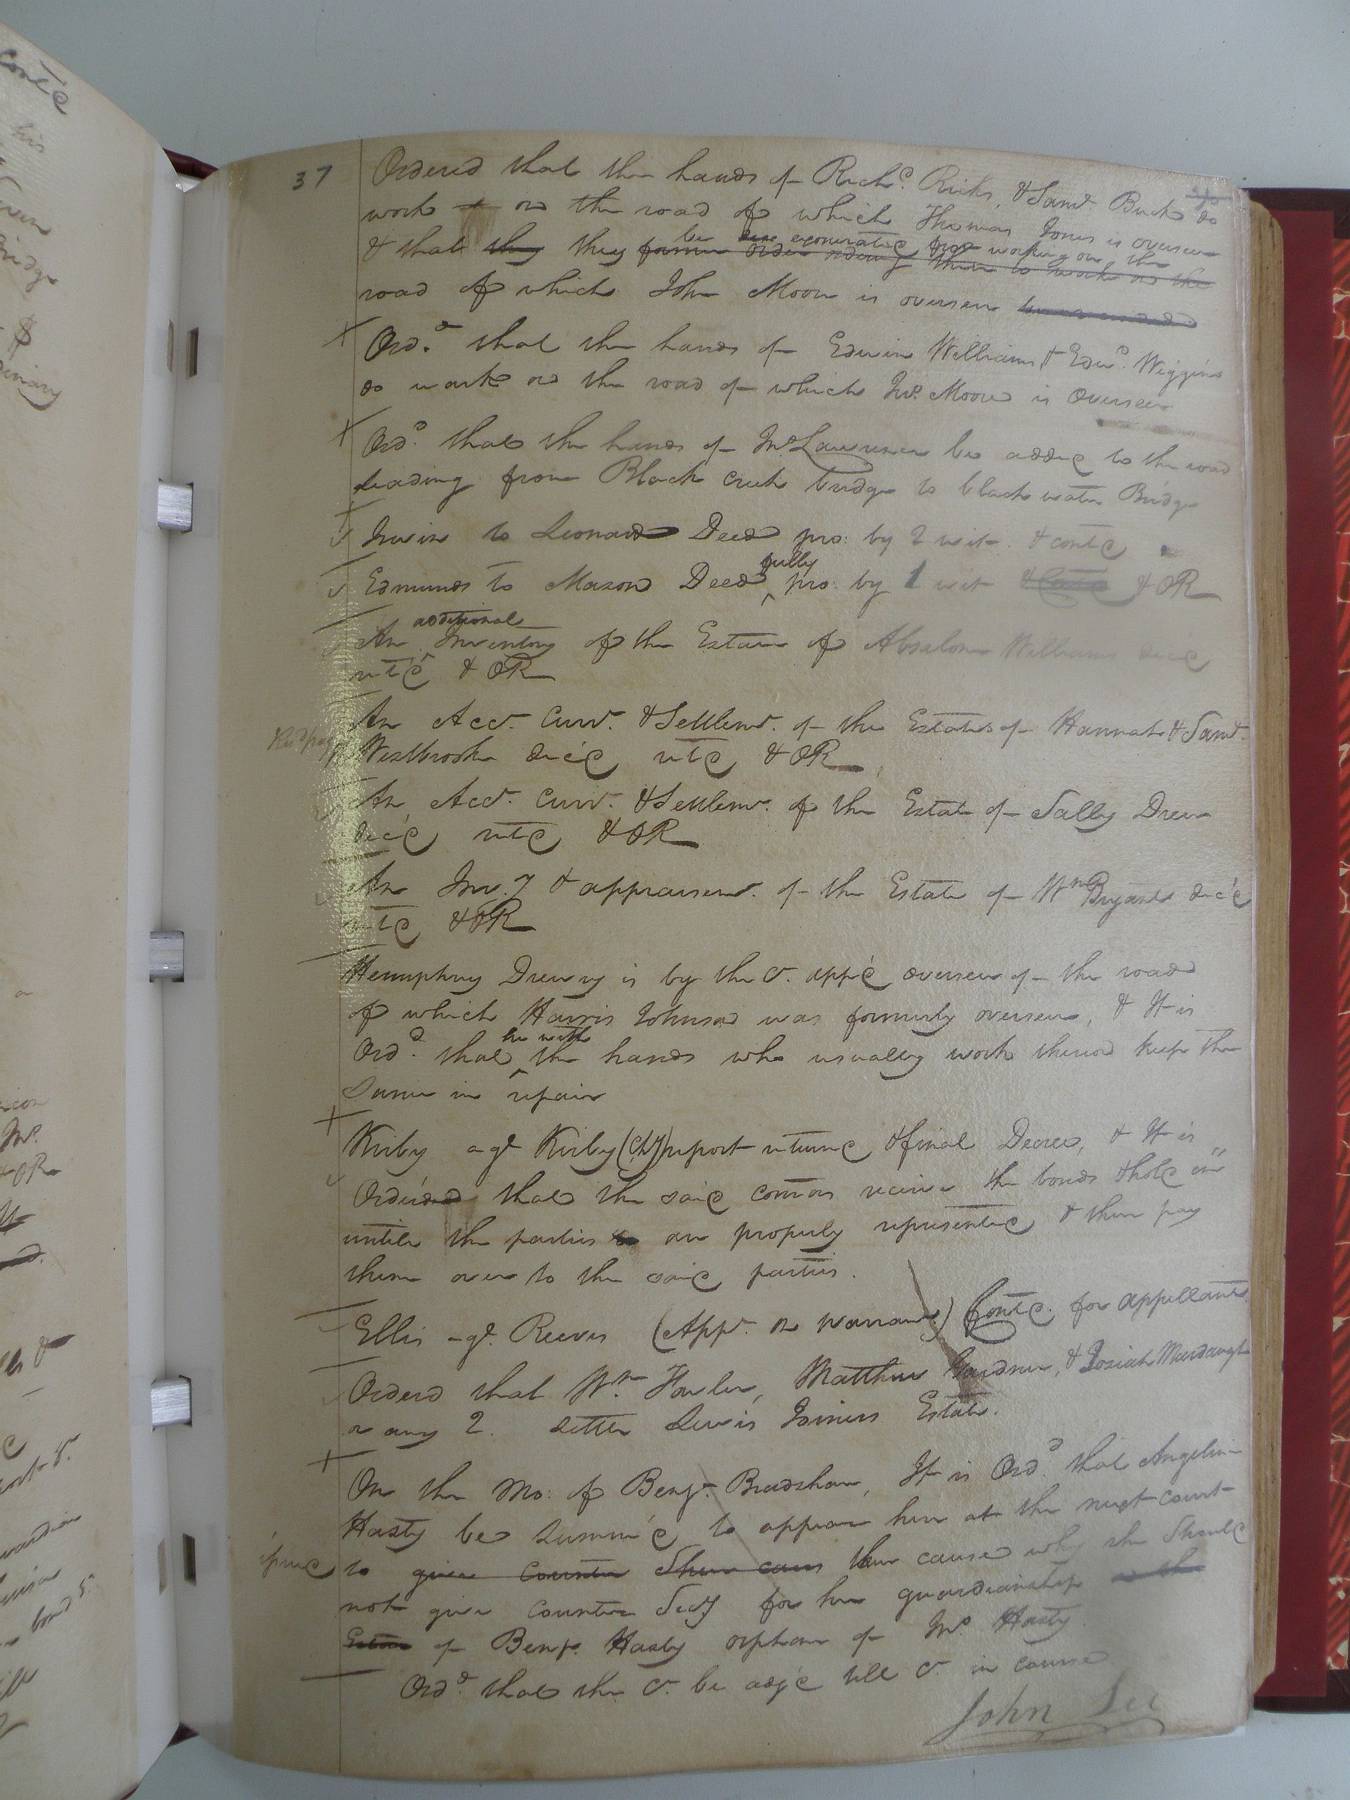 37
Ordered that the hands of Richd. Ricks, & Saml. Buck do
work on the road of which Thomas Jones is overseer
& that they they be exonerated from working on the
former order ordering them to work on the
road of which John Moore is overseer
Ordd. that the hands of Edwin Williams & Edwd. Wiggins
do work on the road of which Jno. Moore is Overseer
Ordd. that the hands of Lawrence be added to the road
leading from Black creek bridge to black water Bridge
Irwin to Leonard Deed pro: by 2 wit. & contd
Edmunds to Mason Deed fully pro: by 1 wit & OR
An additional Inventory of the Estate of Absalom Williams decd
retd & OR
An Acct. Curt. & Settlemt. of the Estates of Hannah & Saml.
Westbrook decd retd & OR
An Acct. Curt. & Settlemt. of the Estate of Sally Drew
decd retd & OR
An Inv.y & appraisemt. of the Estate of Wm Bryant decd
retd & OR
Hemuphrey Drewry is by the Ct. appd overseer of the road
of which Harris Johnson was formerly overseer, & It is
Ordd. that he with the hands who usually work thereon keep the
same in repair
Kirby agt Kirby (Chy) report returned & final Decree, & It is
Ordered that the said comrs receive the bonds & hold em
until the parties are properly represented & then pay
them over to the said parties.
Ellis agt. Reeves (Appl. on warrant) Contd. for appellant
Orderd that Wm. Fowler, Matthew Gardner, & Josiah Murdaugh
or any 2. settle Lewis Joiners Estate.
On the Mo: of Benjn. Bradshaw, It is Ordd. that Angelina
Hasty be summd to appear here at the next court
to give Counter Shew caus shew cause why she should
not give Counter Secy for her guardianship
Estate of Benjn. Hasty orphan of Jno Hasty
Ordd. that the Ct. be adjd till Ct. in course
John